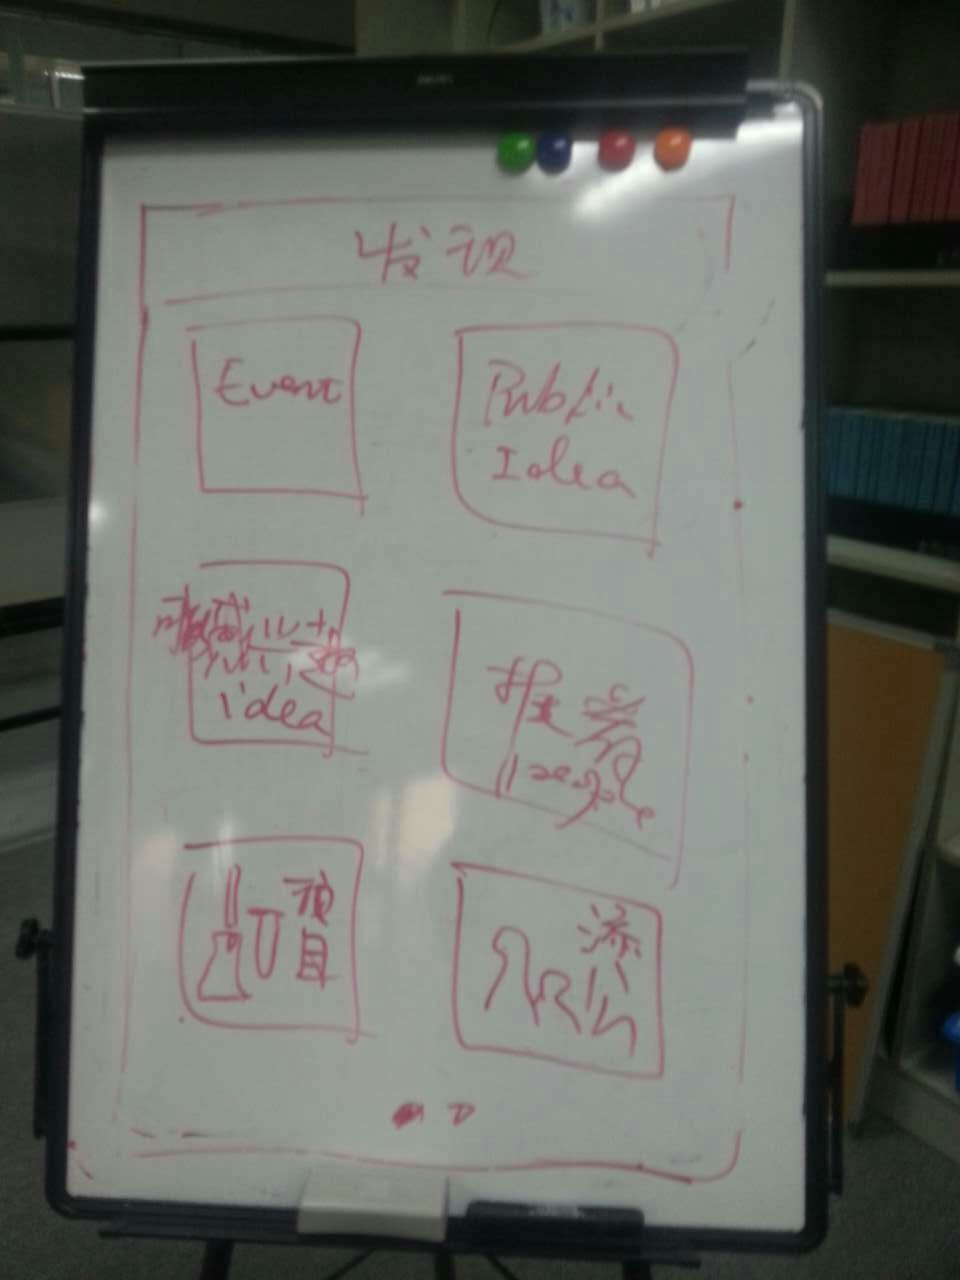 发现
Event
Public
Idea
idea
推荐
people
项目
添